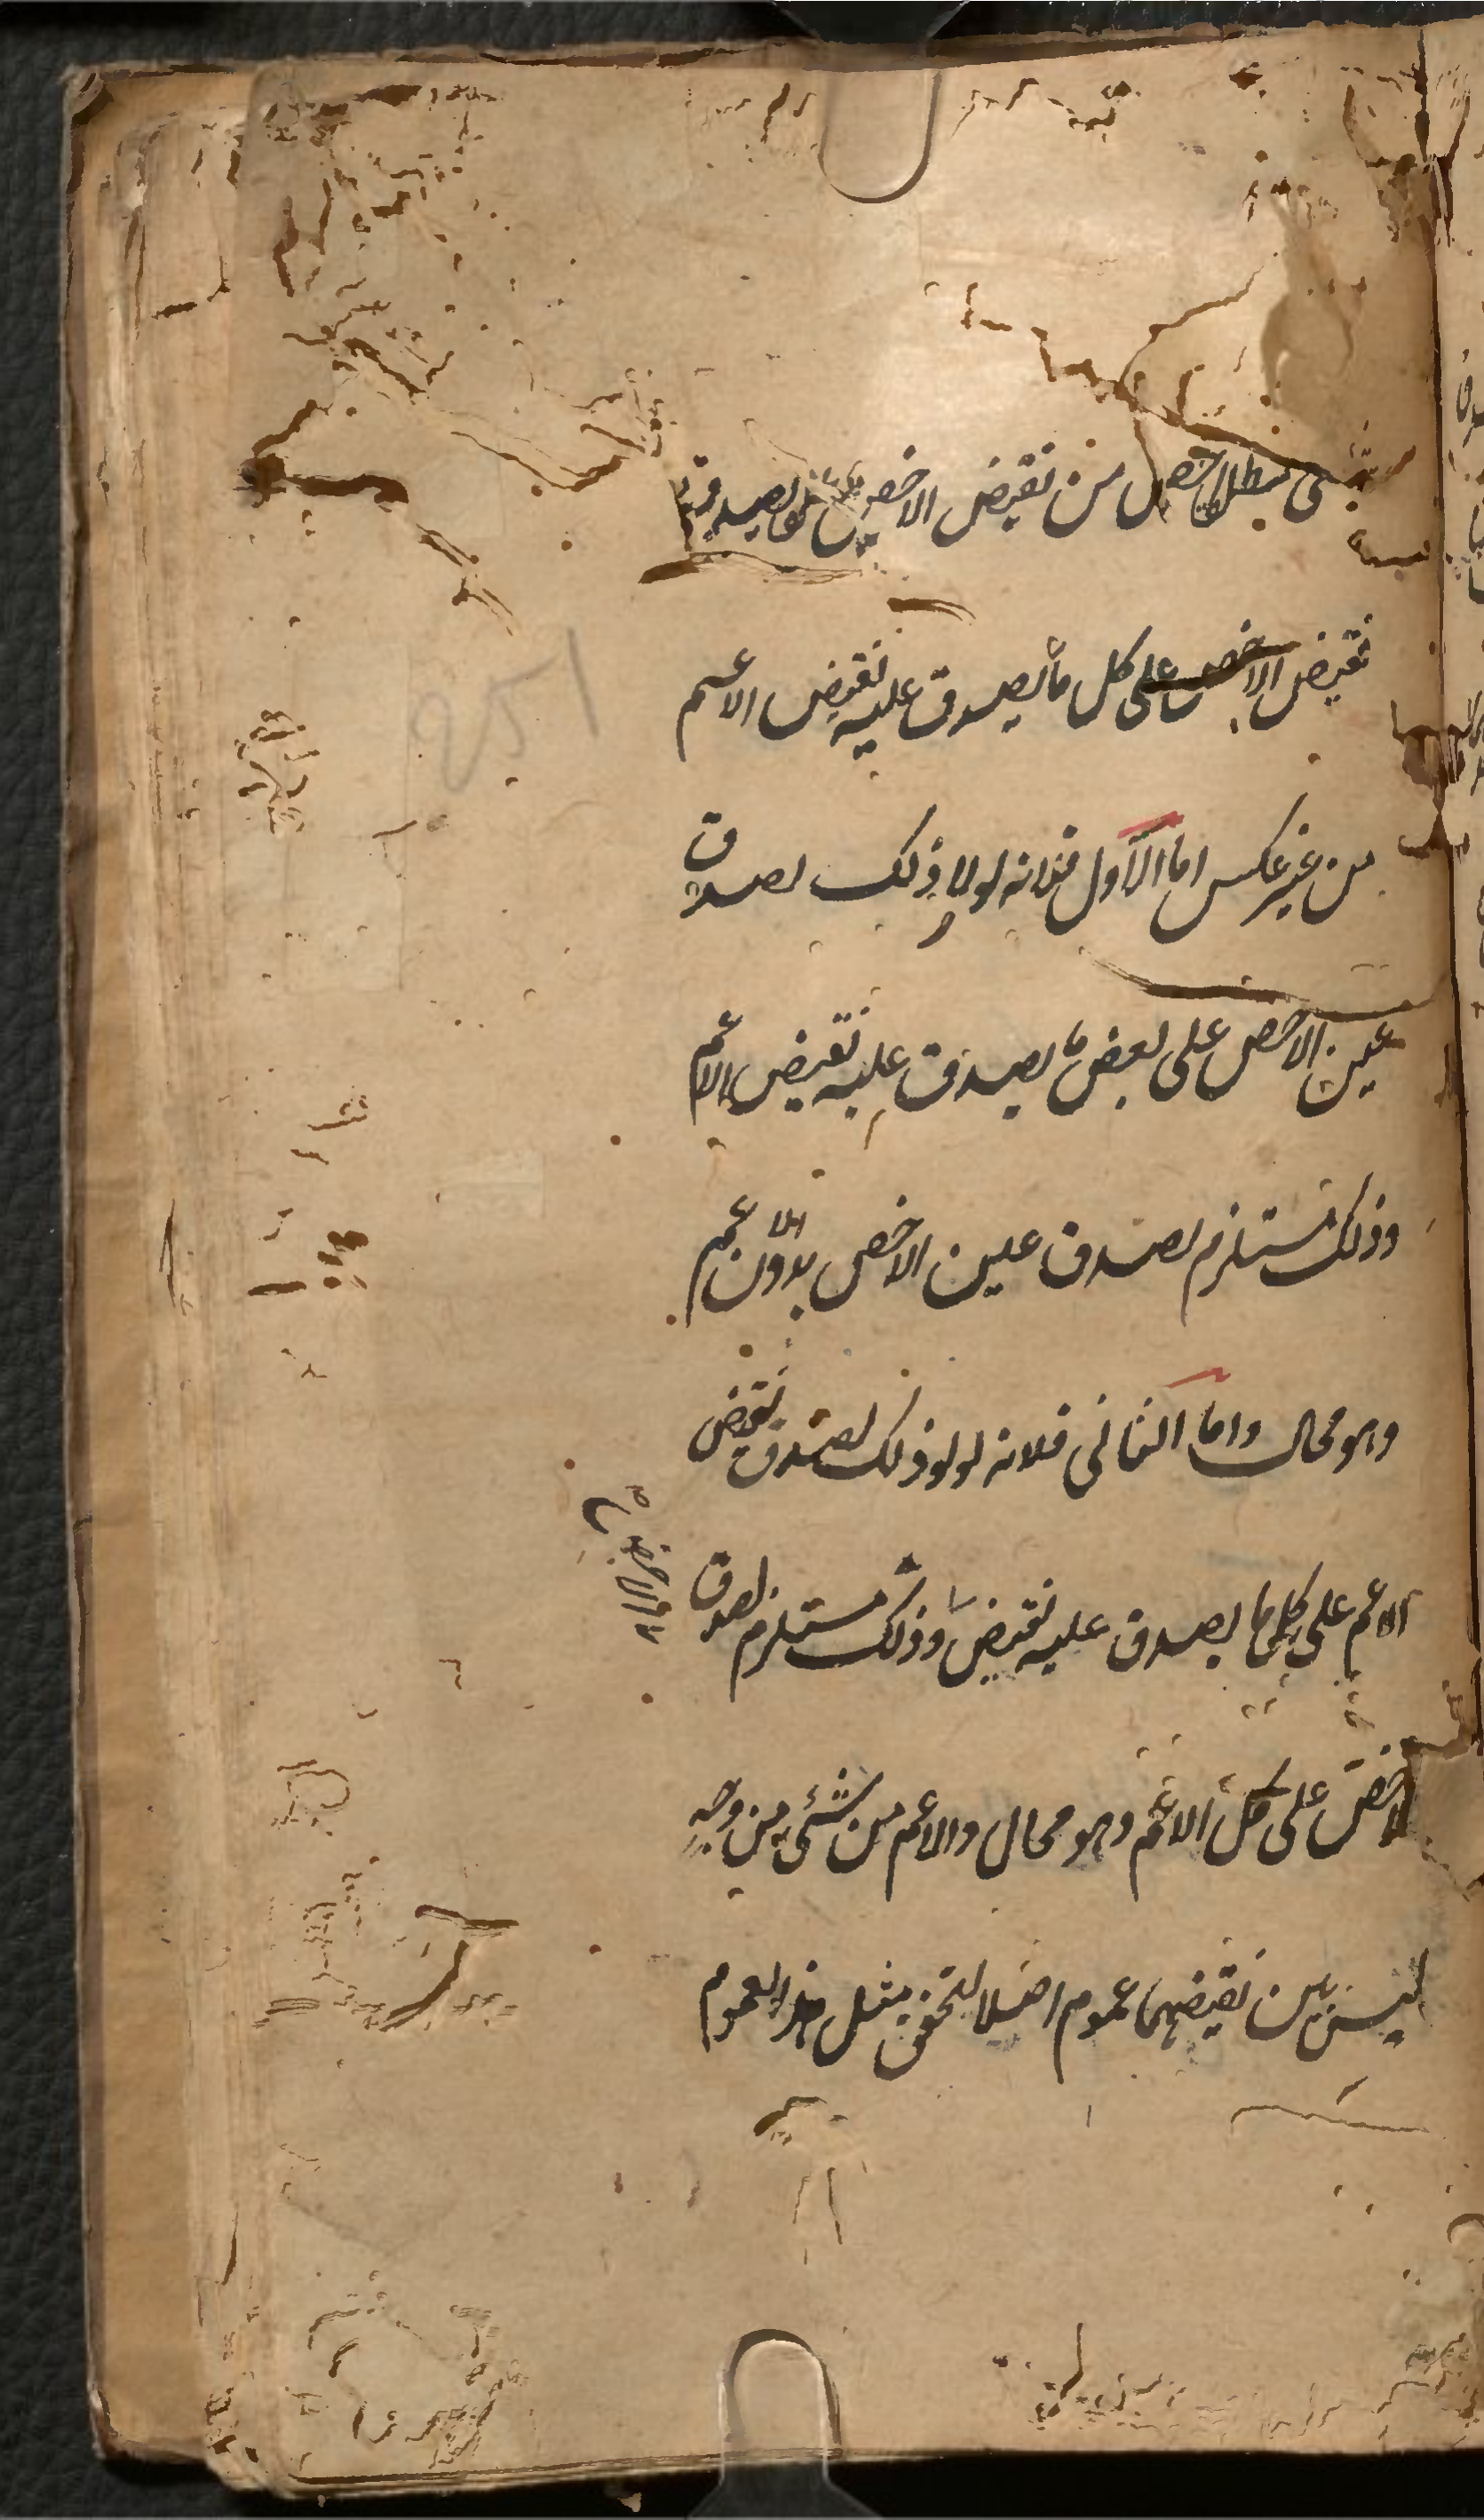 شئ مطلقا اخص من نقيض الاخص لصدق
نقيض الاخص على كل ما يصدق عليه نقيض الاعم
من غير عكس اما الاول فلانه لولا ذلك لصدق
عين الاخص على بعض ما يصدق عليه نقيض الاعم
وذلك مستلزم لصدق عين الاخص بدون الاعم
وهو محال واما الثانى فلانه لولا ذلك لصدق نقيض
الاعم على كل ما يصدق عليه نقيض وذلك مستلزم لصدق
الاخص على كل الاعم وهو محال والاعم من شئ من وجه
ليس بين نقيضهما عموم اصلا لتحقق مثل هذا العموم
251